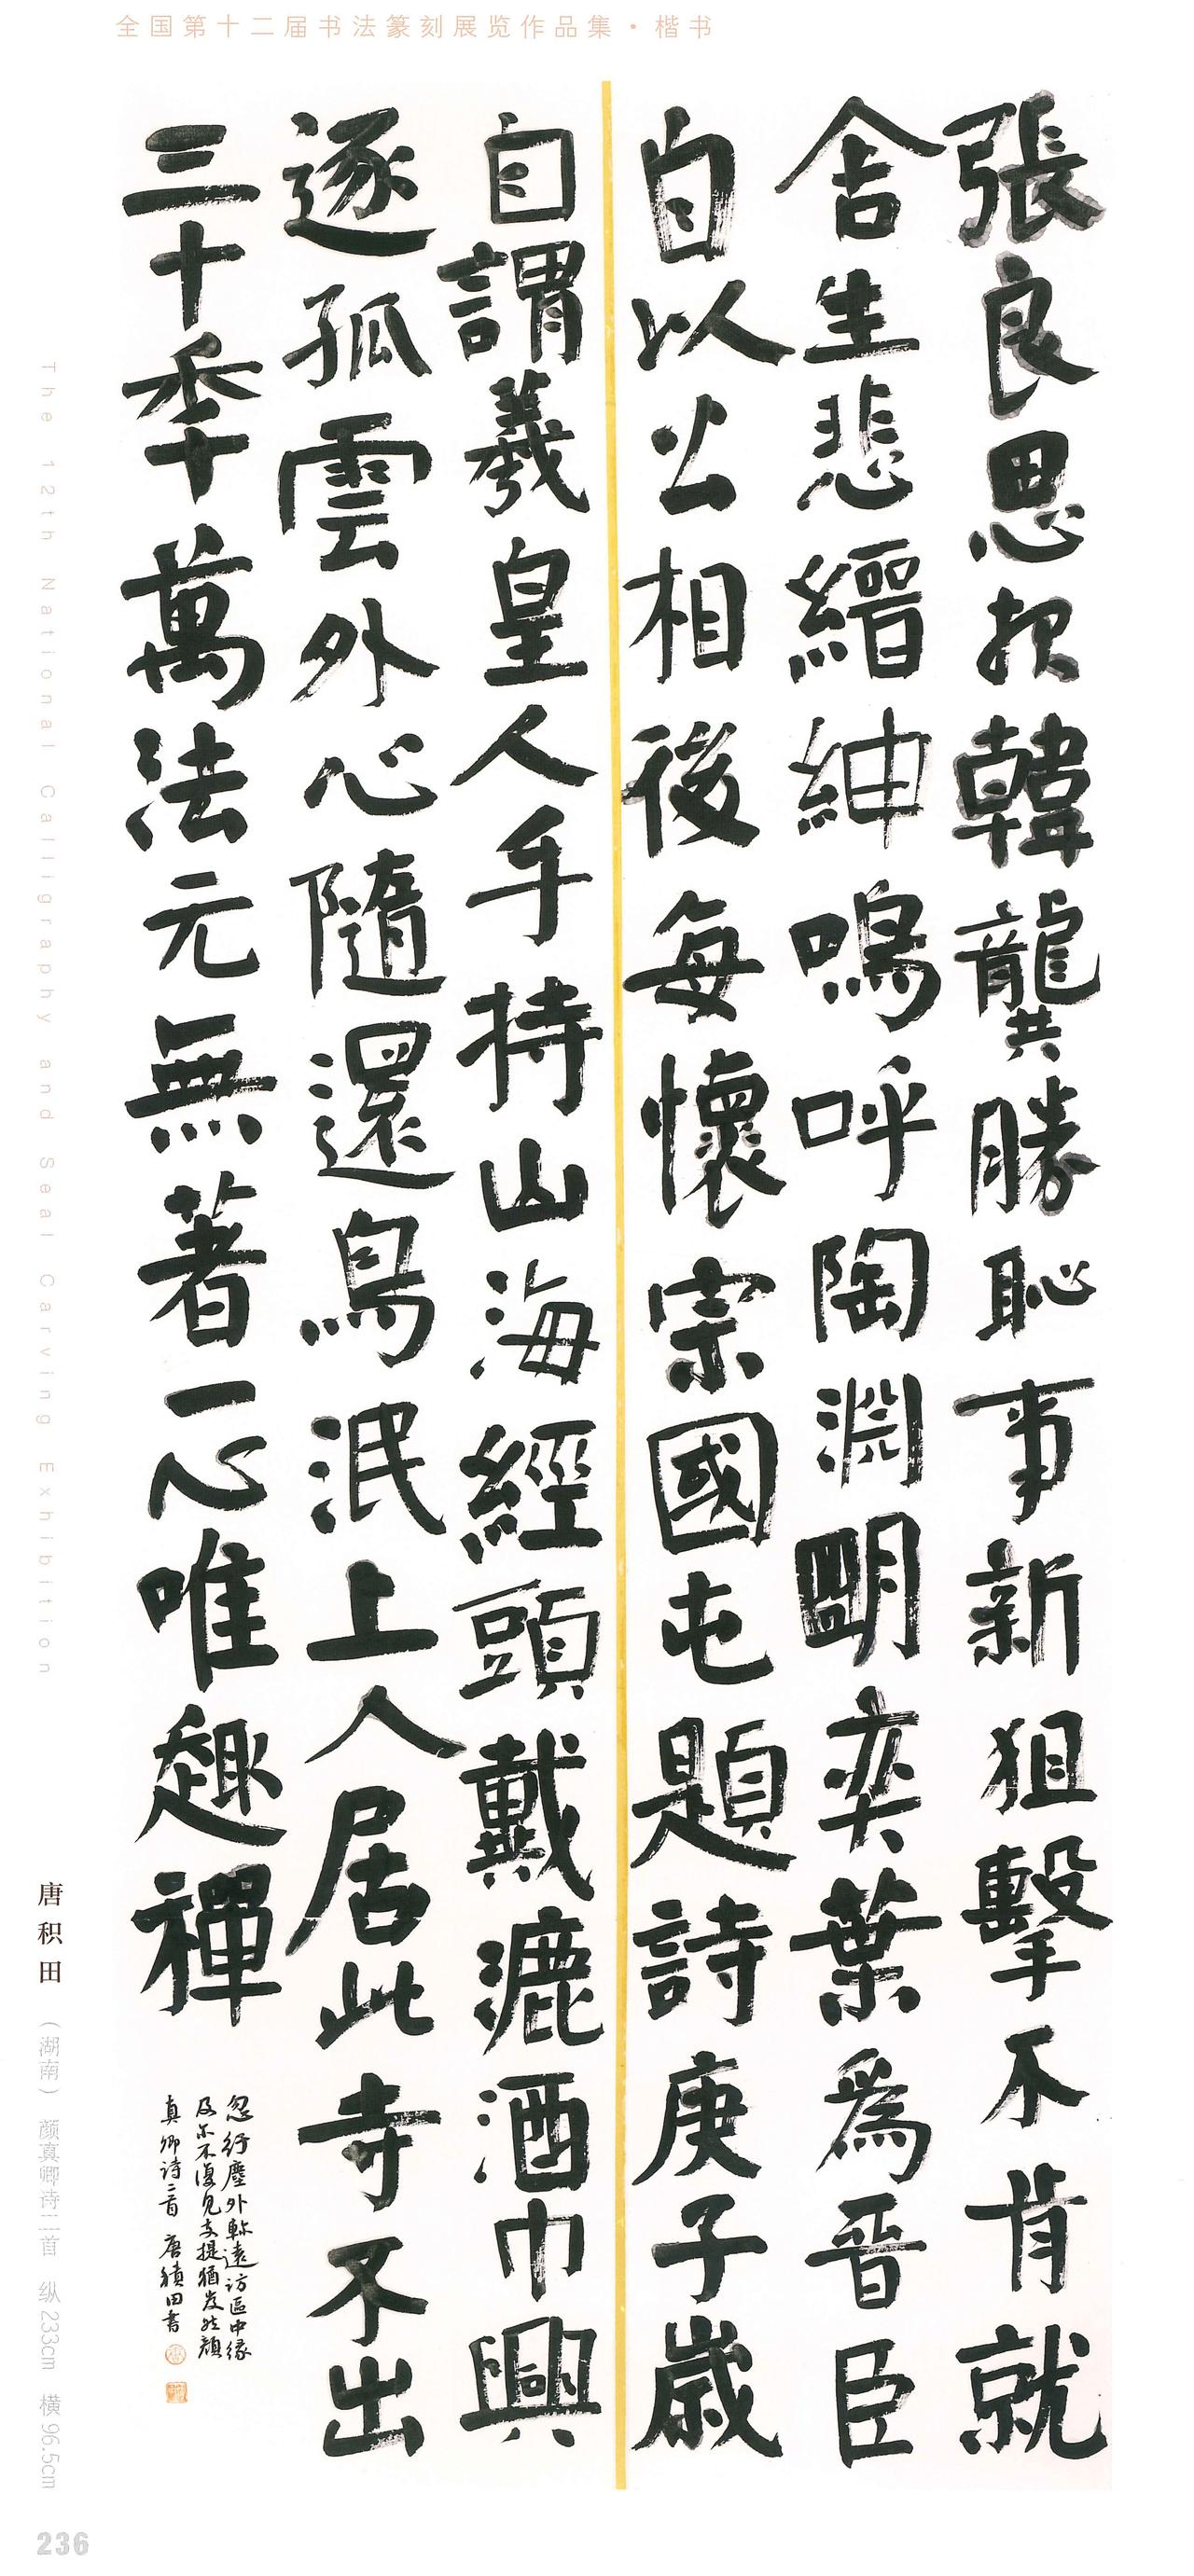 全国第十二届书法篆刻展览作品集·楷书
張良思報韓龔勝恥事新狙擊不肯就
舍生悲縉紳嗚呼陶淵明奕葉為晉臣
自以公相後每懷宗國屯題詩庚子歲
自謂羲皇人手持山海經頭戴漉酒巾興
逐孤雲外心隨還鳥泯上人居此寺不出
三十季萬法元無著一心唯趣禪
忽紆塵外軫遠訪區中緣
及尔不復見支提猶岌然顏
真卿诗二首 唐積田書
The 12th National Calligraphy and Seal Carving Exhibition
唐积田（湖南）颜真卿诗二首 纵233cm 横96.5cm
236